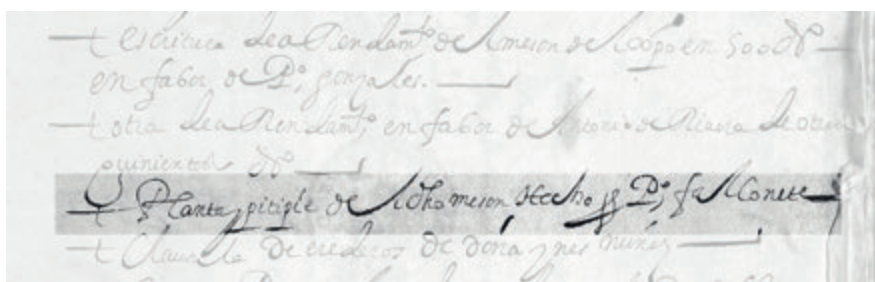 escritura de aRendamto del meson del obpo en 500 Ds
en fabor de Po gonzales.
otra de aRendamto en fabor de Antonio de Riaño de otros
quinientos ds
Planta y pitipie del dho meson Hecho p Po falConete
Clausula de erederos de doña ynes nuñez